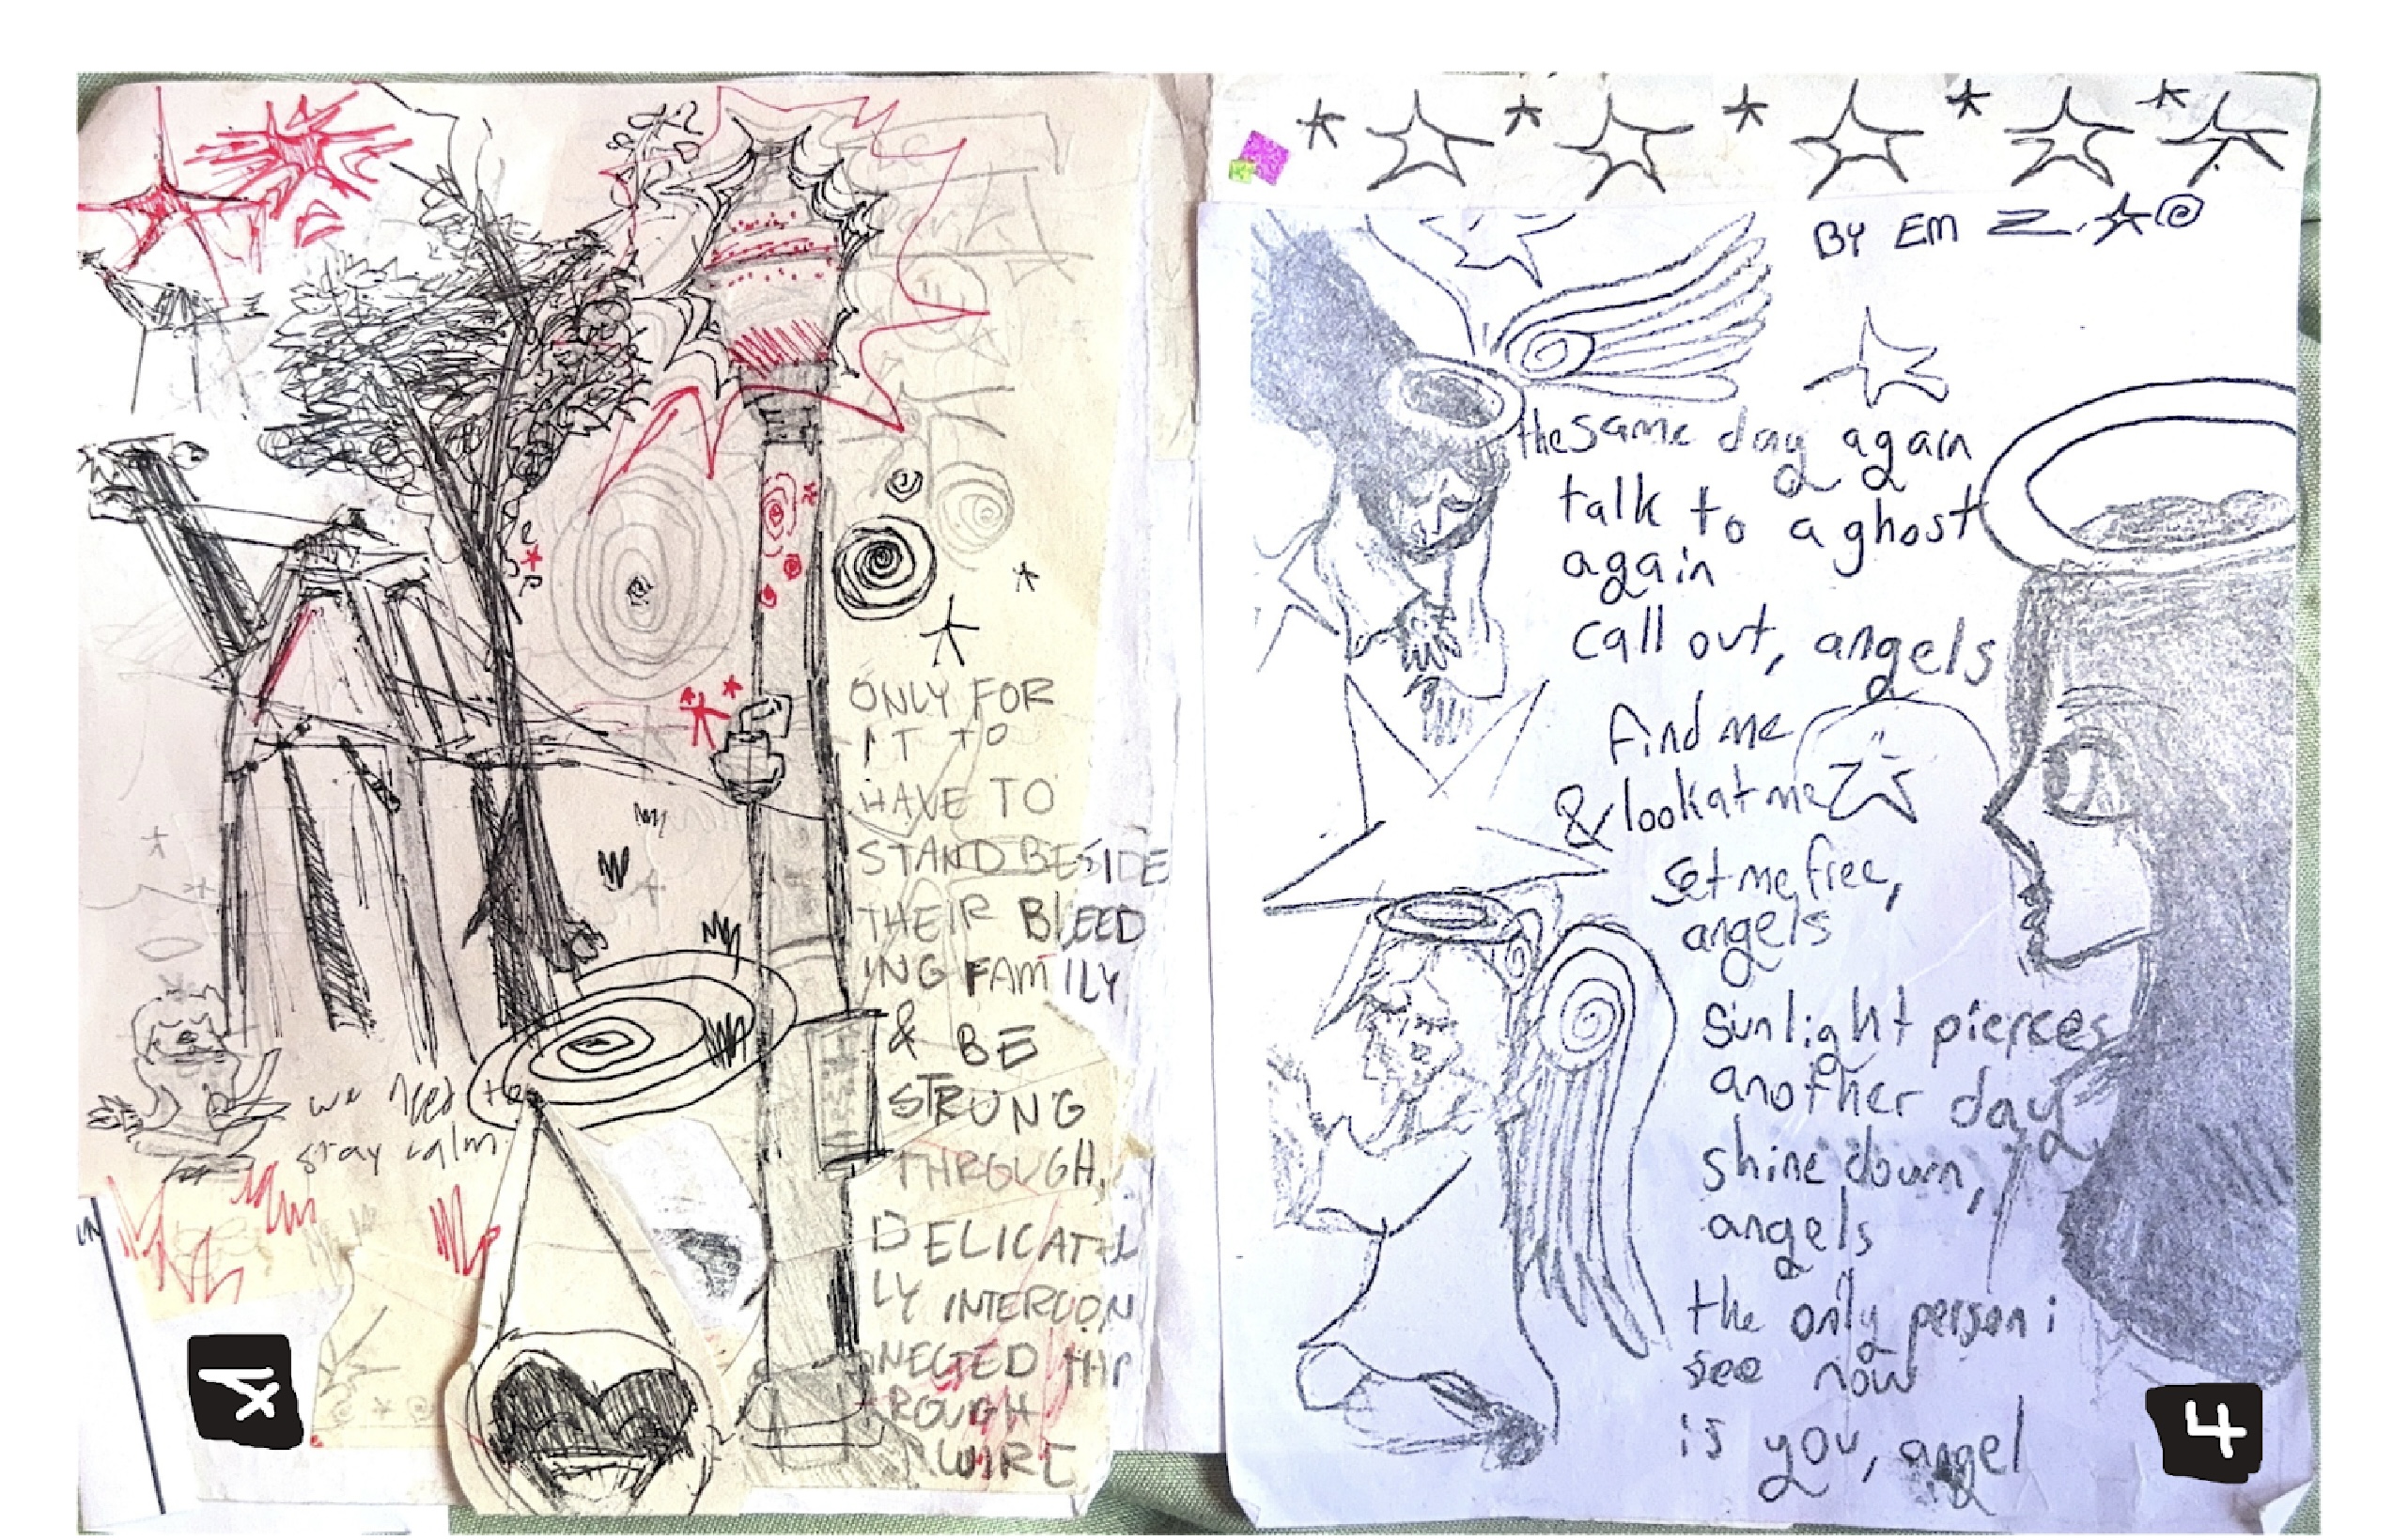 ONLY FOR
IT TO
HAVE TO
STAND BESIDE
THEIR BLEED
ING FAMILY
& BE
STRUNG
THROUGH,
DELICATEL
LY INTERCON
NECTED THR
ROUGH
WIRE
we need to
stay calm
BY EM Z.
the same day again
talk to a ghost
again
call out, angels
find me
& look at me
set me free,
angels
sunlight pierces
another day
shine down,
angels
the only person i
see now
is you, angel
4